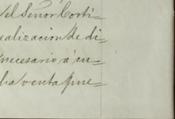 del Señor Corti-
ealizacion de di-
necesario á cu-
ba venta pue-